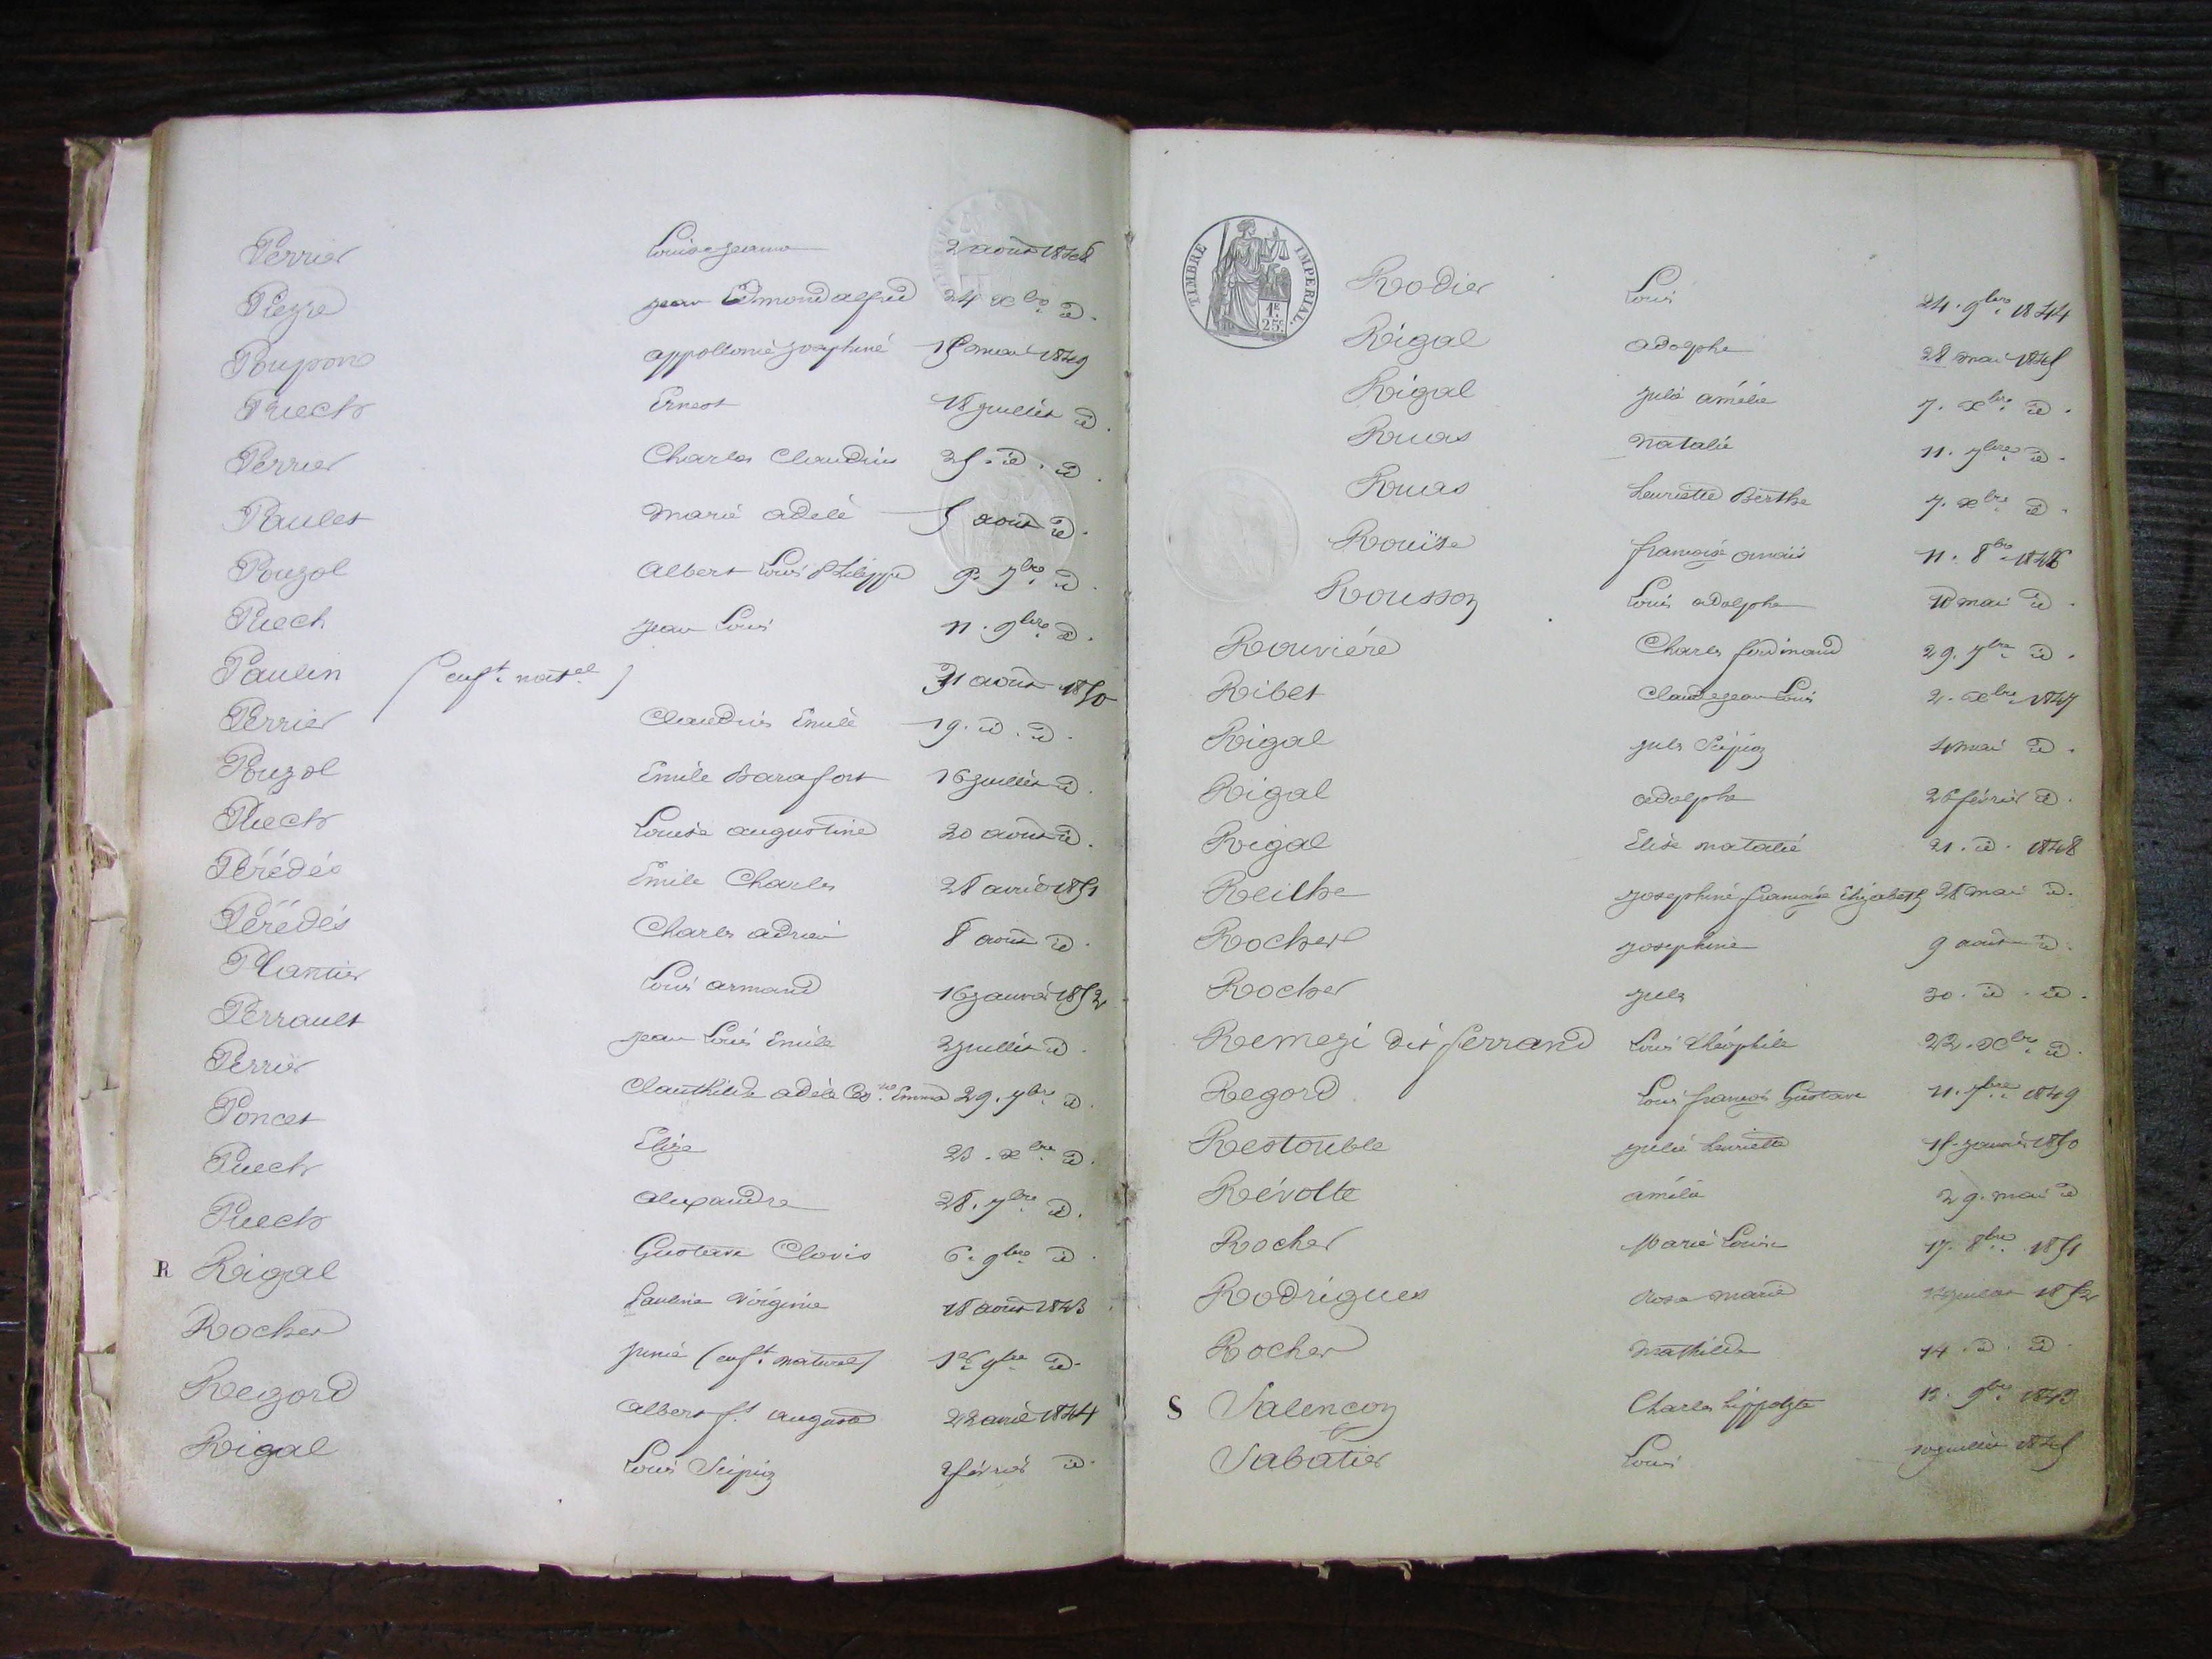 Perrier Louise Jeanne 2 août 1848
Pieyre Jean Edmond alfred 24 xbre id.
Poupon appollonie Joséphine 15 mai 1849
Puech Ernest 18 juillet id.
Perrier Charles Claudius 25. id. id.
Paulet marie adèle 5 août id.
Pouzol Albert Louis Philippe 9. 7bre id.
Puech Jean Louis 11. 9bre id.
Paulin (enft. natel) 31 août 1850
Perrier Claudius Emile 19. id. id.
Pouzol Emile Barafort 16 juillet id.
Puech Louise augustine 20 août id.
Pérédés Emile Charles 28 avril 1851
Pérédés Charles adrien 8 août id.
Plantier Louis armand 16 janvier 1852
Perrault Jean Louis Emile 2 juillet id.
Perrier Clauthilde adèle Emma 29. 7bre id.
Poncet Elize 23. xbre id.
Puech alexandre 28. 7bre id.
Puech Gustave Clovis 6. 9bre id.
R Rigal Pauline Virginie 18 août 1843
Rocher Junie (enft. naturel) 1er 9bre id.
Regord Albert ft. auguste 22 avril 1844
Rigal Louis Scipion 2 février id.
TIMBRE IMPERIAL.
1F. 25c.
Rodier Louis 24. 9bre 1844
Rigal adolphe 28 mai 1845
Rigal Julie amélie 7. xbre id.
Ruas natalie 11. 7bre id.
Ruas henriette Berthe 7. xbre id.
Rouïse françoise anaïs 11. 8bre 1846
Rousson Louis adolphe 10 mai id.
Rouvière Charles ferdinand 29. 7bre id.
Ribet Claude jean Louis 2. xbre 1847
Rigal Jules Scipion 4 mai id.
Rigal adolphe 26 février id.
Rigal Elise natalie 21. id. 1848
Reilhe Joséphine françoise Elizabeth 28 mai id.
Rocher Joséphine 9 août id.
Rocher Jules 30. id. id.
Remezi dit ferrand Louis Théophile 22. xbre id.
Regord Louis françois Gustave 11. 7bre 1849
Restouble Julie henriette 15 janvier 1850
Révolte amélie 29. mai id
Rocher Marie Louise 17. 8bre 1851
Rodrigues Rosa marie 1852
Rocher Mathilde 14. id. id.
S Salençon Charles hippolyte 12. 9bre 1843
Sabatier Louis 10 juillet 1845